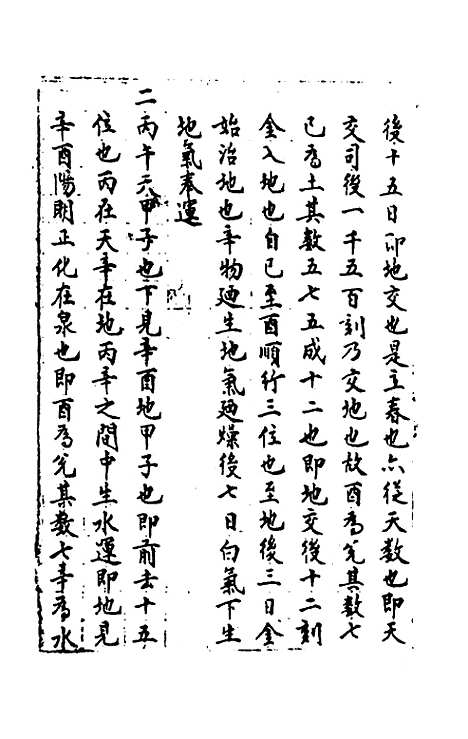 後十五日卬地交也是立春也六從天數也即天
交司後一千五百刻乃交地也故酉為兌其數七
已為土其數五七五成十二也即地交後十二刻
金入地也自已至酉順行三位也至地後三日金
始治地也辛物廼生地氣廼燥後七日白氣下生
地氣奉運
二丙午六甲子也下見辛酉地甲子也即前去十五
位也丙在天辛在地丙辛之間中生水運即地見
辛酉陽明正化在泉也即酉為兌其數七辛為水